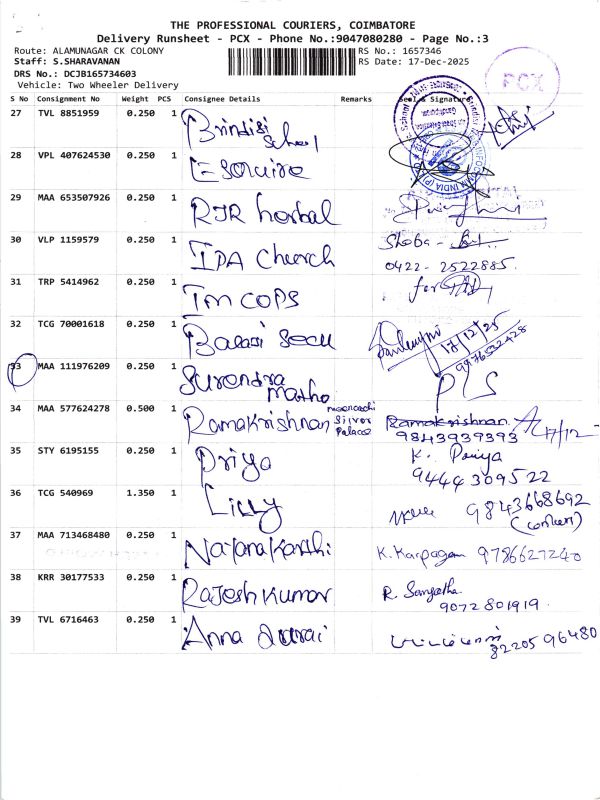 THE PROFESSIONAL COURIERS, COIMBATORE
Delivery Runsheet - PCX - Phone No.:9047080280 - Page No.:3
Route: ALAMUNAGAR CK COLONY
RS No.: 1657346
Staff: S.SHARAVANAN
RS Date: 17-Dec-2025
DRS No.: DCJB165734603
Vehicle: Two Wheeler Delivery
PCX
S No Consignment No Weight PCS Consignee Details Remarks Seal & Signature
27 TVL 8851959 0.250 1 Brindisi School
28 VPL 407624530 0.250 1 Esquire
29 MAA 653507926 0.250 1 RJR herbal
30 VLP 1159579 0.250 1 IPA Church Shoba -
0422 - 2522885.
31 TRP 5414962 0.250 1 Im COPS for
32 TCG 70001618 0.250 1 Balaji Secu
17/12/25
9976532428
33 MAA 111976209 0.250 1 Surendra Matho PLS
34 MAA 577624278 0.500 1 Ramakrishnan meenachi Silver Palace Ramakrishnan
9843939393 17/12
35 STY 6195155 0.250 1 Priya K. Priya
9444309522
36 TCG 540969 1.350 1 Lilly 9843668692
37 MAA 713468480 0.250 1 Natana Kanthi K. Karpagam 9786627240
38 KRR 30177533 0.250 1 Rajesh Kumar R. Sangatha
9072801919.
39 TVL 6716463 0.250 1 Anna durai
8220596480